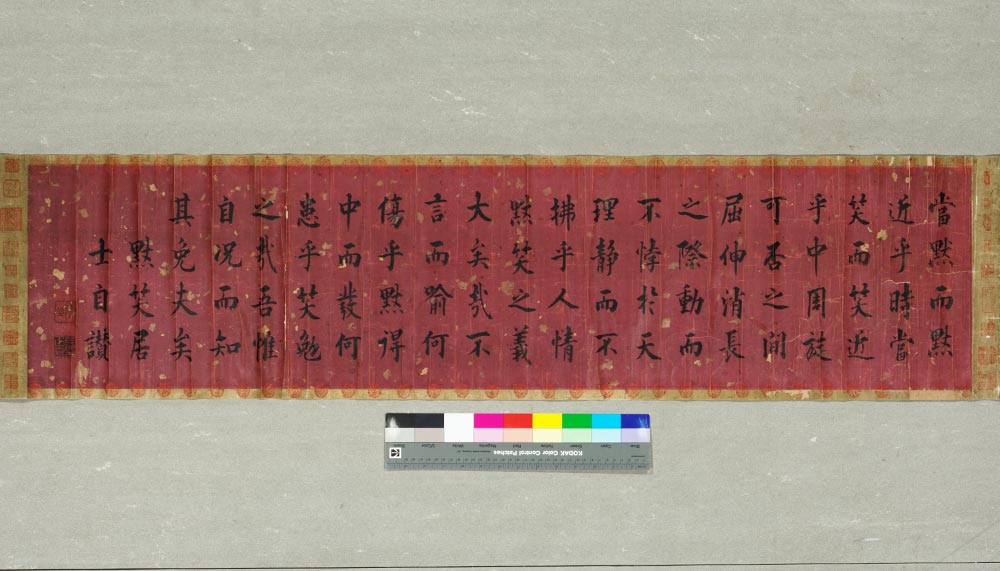 當默而默
近乎時當
笑而笑近
乎中周旋
可否之間
屈伸消長
之際動而
不悖於天
理靜而不
拂乎人情
默笑之義
大矣哉不
言而喻何
傷乎默得
中而發何
患乎笑勉
之哉吾惟
自况而知
其免夫矣
默笑居
士自讃
KODAK Color Control Patches
Blue
Cyan
Green
Yellow
Red
Magenta
White
3/Color
Black